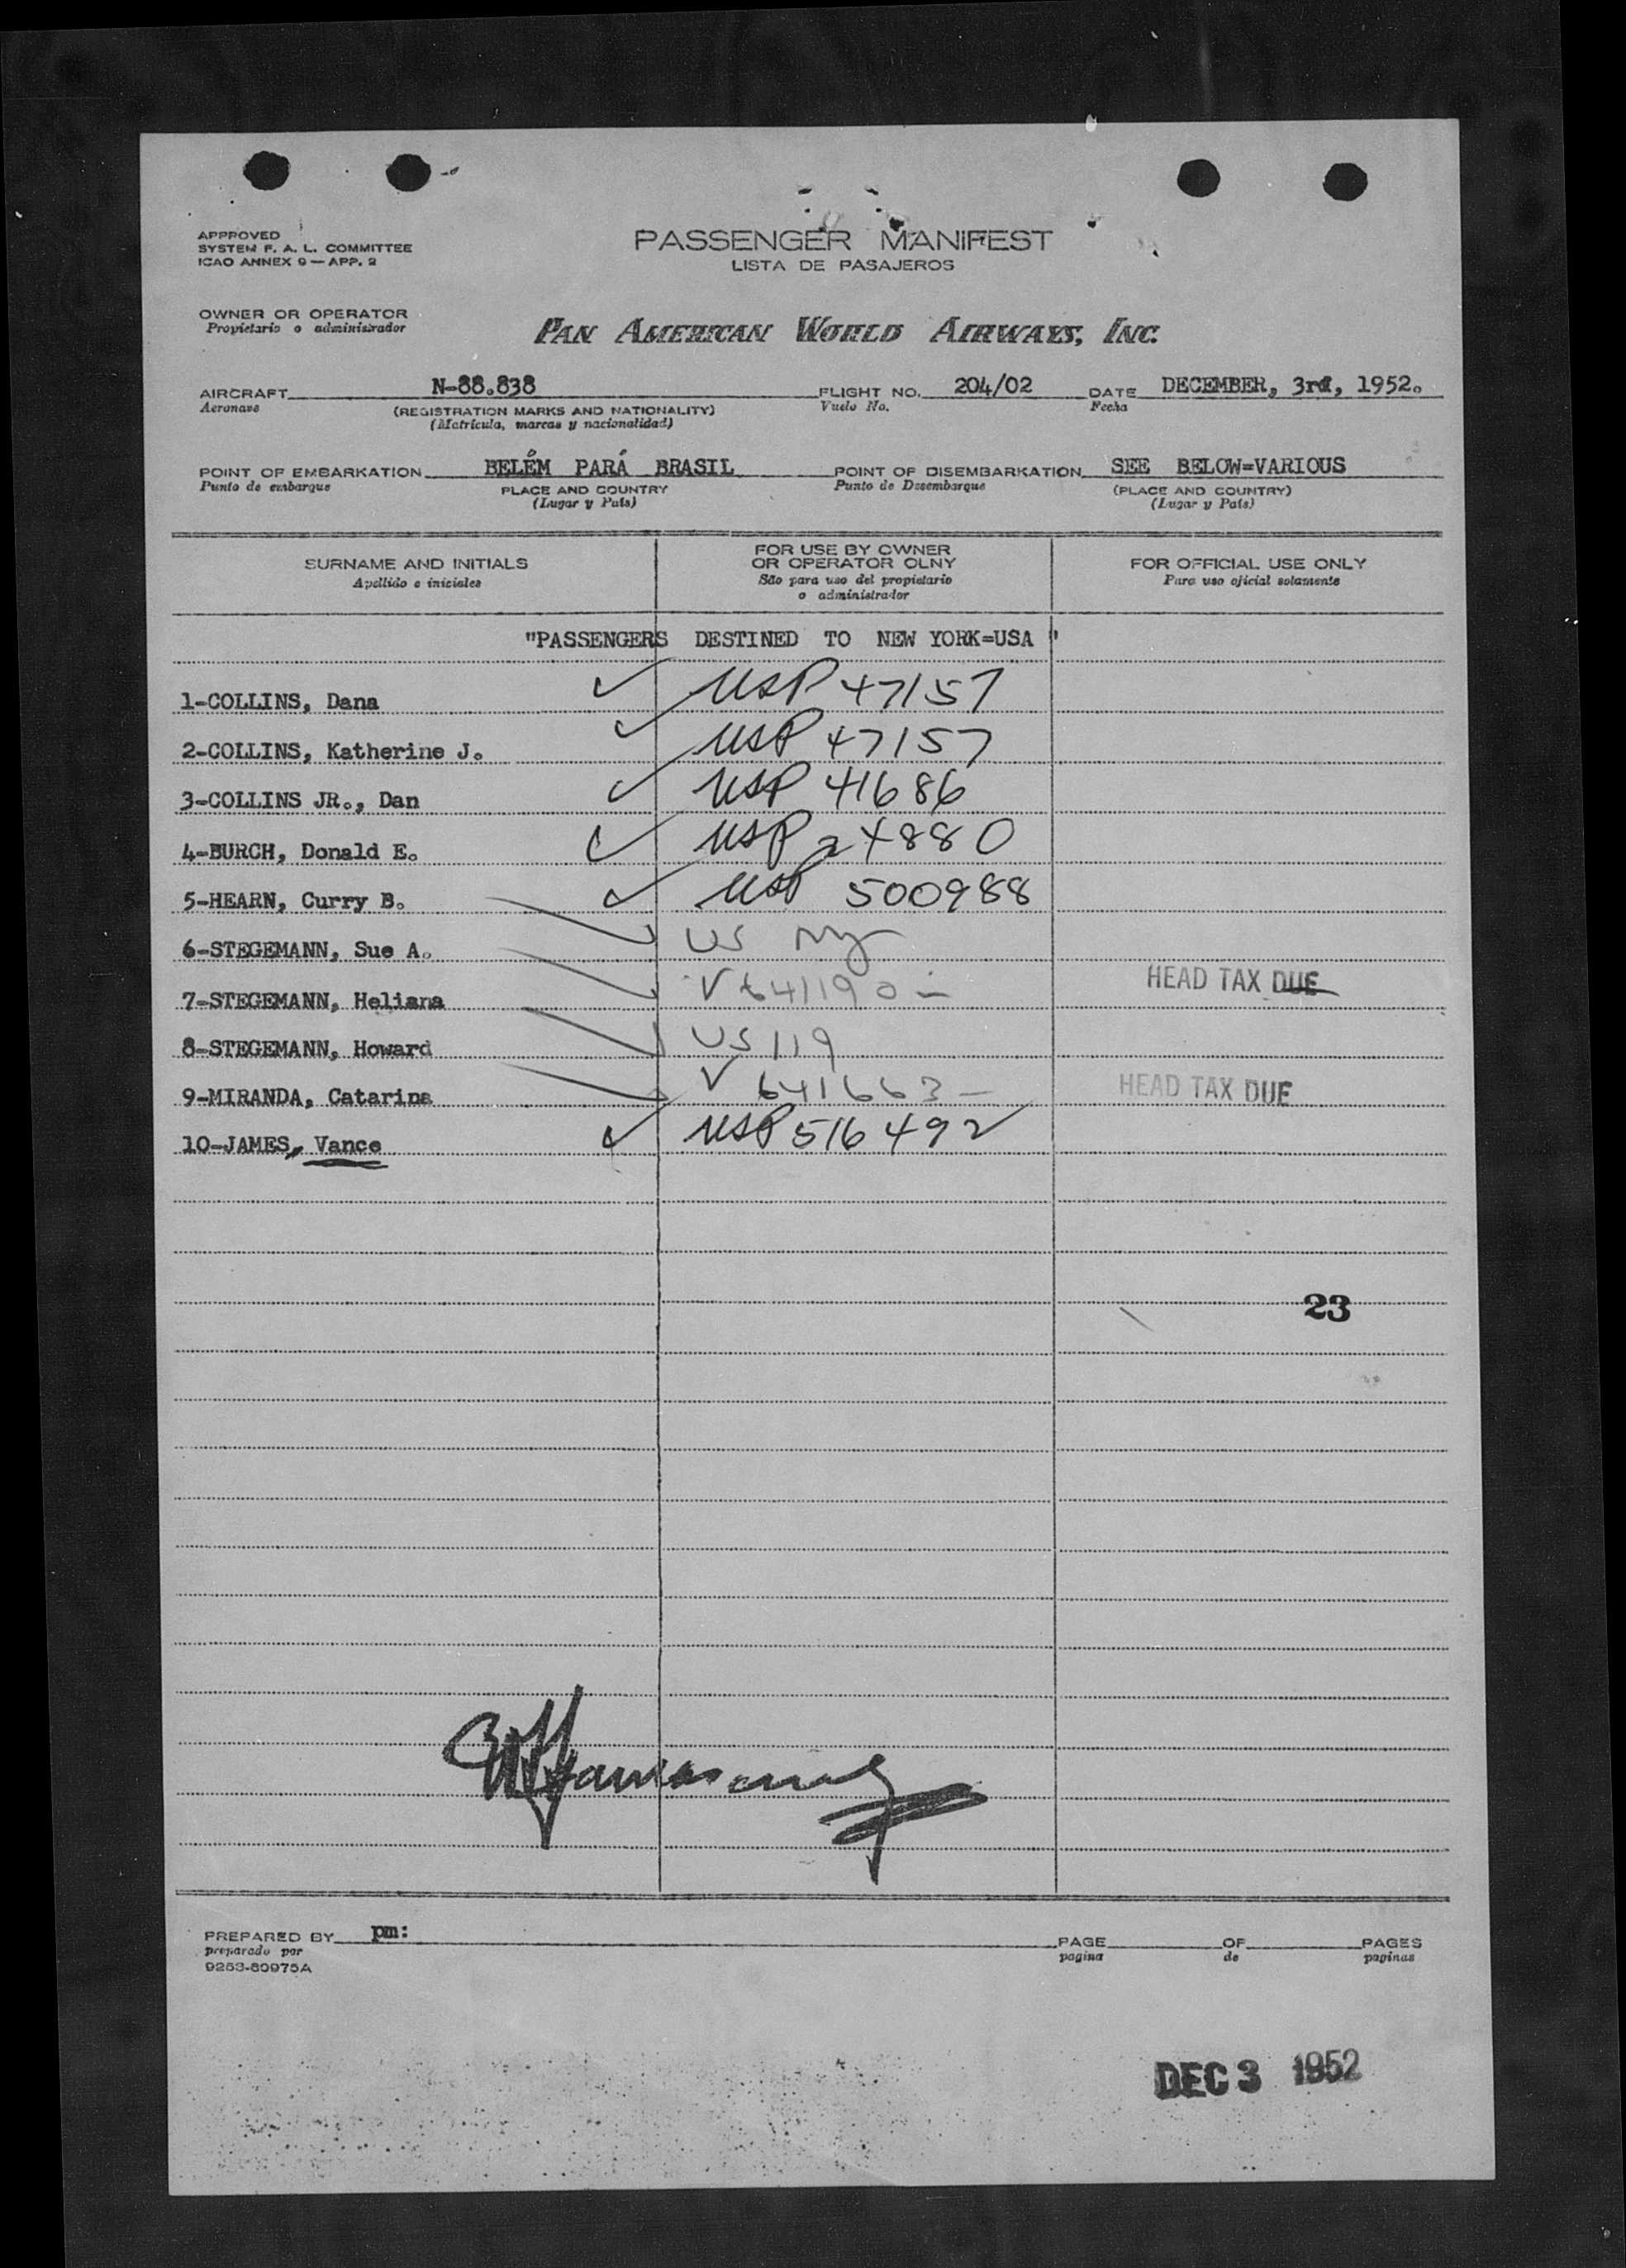 APPROVED
SYSTEM F. A. L. COMMITTEE
ICAO ANNEX 9 — APP. 2
PASSENGER MANIFEST
LISTA DE PASAJEROS
OWNER OR OPERATOR
Propietario o administrador
PAN AMERICAN WORLD AIRWAYS, INC.
AIRCRAFT N-88.838 FLIGHT NO. 204/02 DATE DECEMBER, 3rd, 1952.
Aeronave (REGISTRATION MARKS AND NATIONALITY) Vuelo No. Fecha
(Matrícula, marcas y nacionalidad)
POINT OF EMBARKATION BELÉM PARÁ BRASIL POINT OF DISEMBARKATION SEE BELOW=VARIOUS
Punto de embarque PLACE AND COUNTRY Punto de Desembarque (PLACE AND COUNTRY)
(Lugar y País) (Lugar y País)
SURNAME AND INITIALS
Apellido e iniciales
FOR USE BY OWNER
OR OPERATOR OLNY
São para uso del propietario
o administrador
FOR OFFICIAL USE ONLY
Para uso oficial solamente
"PASSENGERS DESTINED TO NEW YORK=USA "
1-COLLINS, Dana ✓ USP 47157
2-COLLINS, Katherine J. ✓ USP 47157
3-COLLINS JR., Dan ✓ USP 41686
4-BURCH, Donald E. ✓ USP 24880
5-HEARN, Curry B. ✓ USP 500988
6-STEGEMANN, Sue A. US
7-STEGEMANN, Heliana V 641190 — HEAD TAX DUE
8-STEGEMANN, Howard US 119
9-MIRANDA, Catarina V 641663 — HEAD TAX DUE
10-JAMES, Vance ✓ USP 516492 ✓
23
PREPARED BY pm: PAGE OF PAGES
preparado por pagina de paginas
9253-60975A
DEC 3 1952